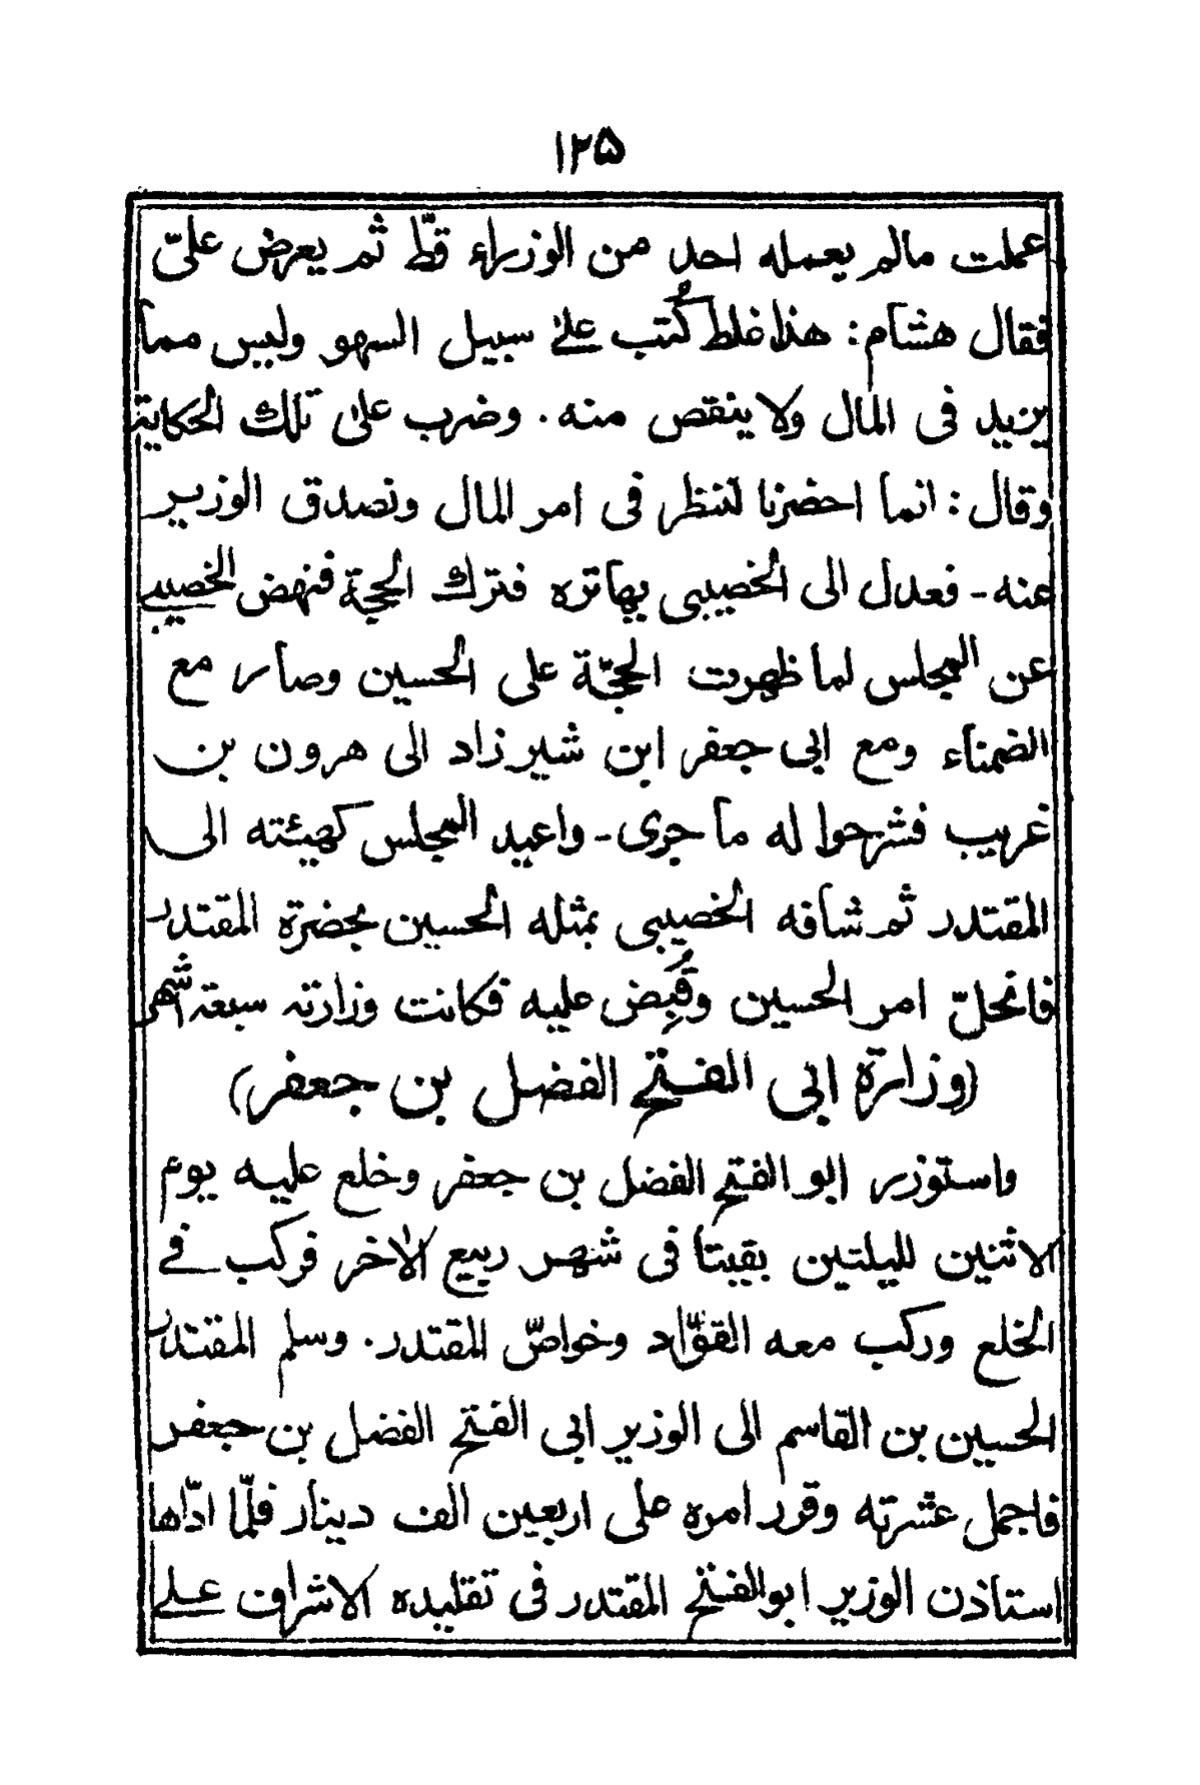 ١٢٥
عملت مالم يعمله احد من الوزراء قطّ ثم يعرض علىّ
فقال هشام: هذا غلط كُتب على سبيل السهو وليس مما
يزيد فى المال ولا ينقص منه. وضرب على تلك الحكاية
وقال: انما احضرنا لننظر فى امر المال ونصدق الوزير
عنه - فعدل الى الخصيبى يهاتره فترك الحجة فنهض الخصيبى
عن المجلس لما ظهرت الحجّة على الحسين وصار مع
الضمناء ومع ابى جعفر ابن شيرزاد الى هرون بن
غريب فشرحوا له ما جرى - واعيد المجلس كهيئته الى
المقتدر ثم شافه الخصيبى بمثله الحسين بحضرة المقتدر
فانحلّ امر الحسين وقُبِض عليه فكانت وزارته سبعة اشهر
(وزارة ابى الفتح الفضل بن جعفر)
واستوزر ابو الفتح الفضل بن جعفر وخلع عليه يوم
الاثنين لليلتين بقيتا فى شهر ربيع الاخر فركب فى
الخلع وركب معه القوّاد وخواصّ المقتدر. وسلم المقتدر
الحسين بن القاسم الى الوزير ابى الفتح الفضل بن جعفر
فاجمل عشرته وقرر امره على اربعين الف دينار فلمّا ادّاها
استاذن الوزير ابو الفتح المقتدر فى تقليده الاشراف على